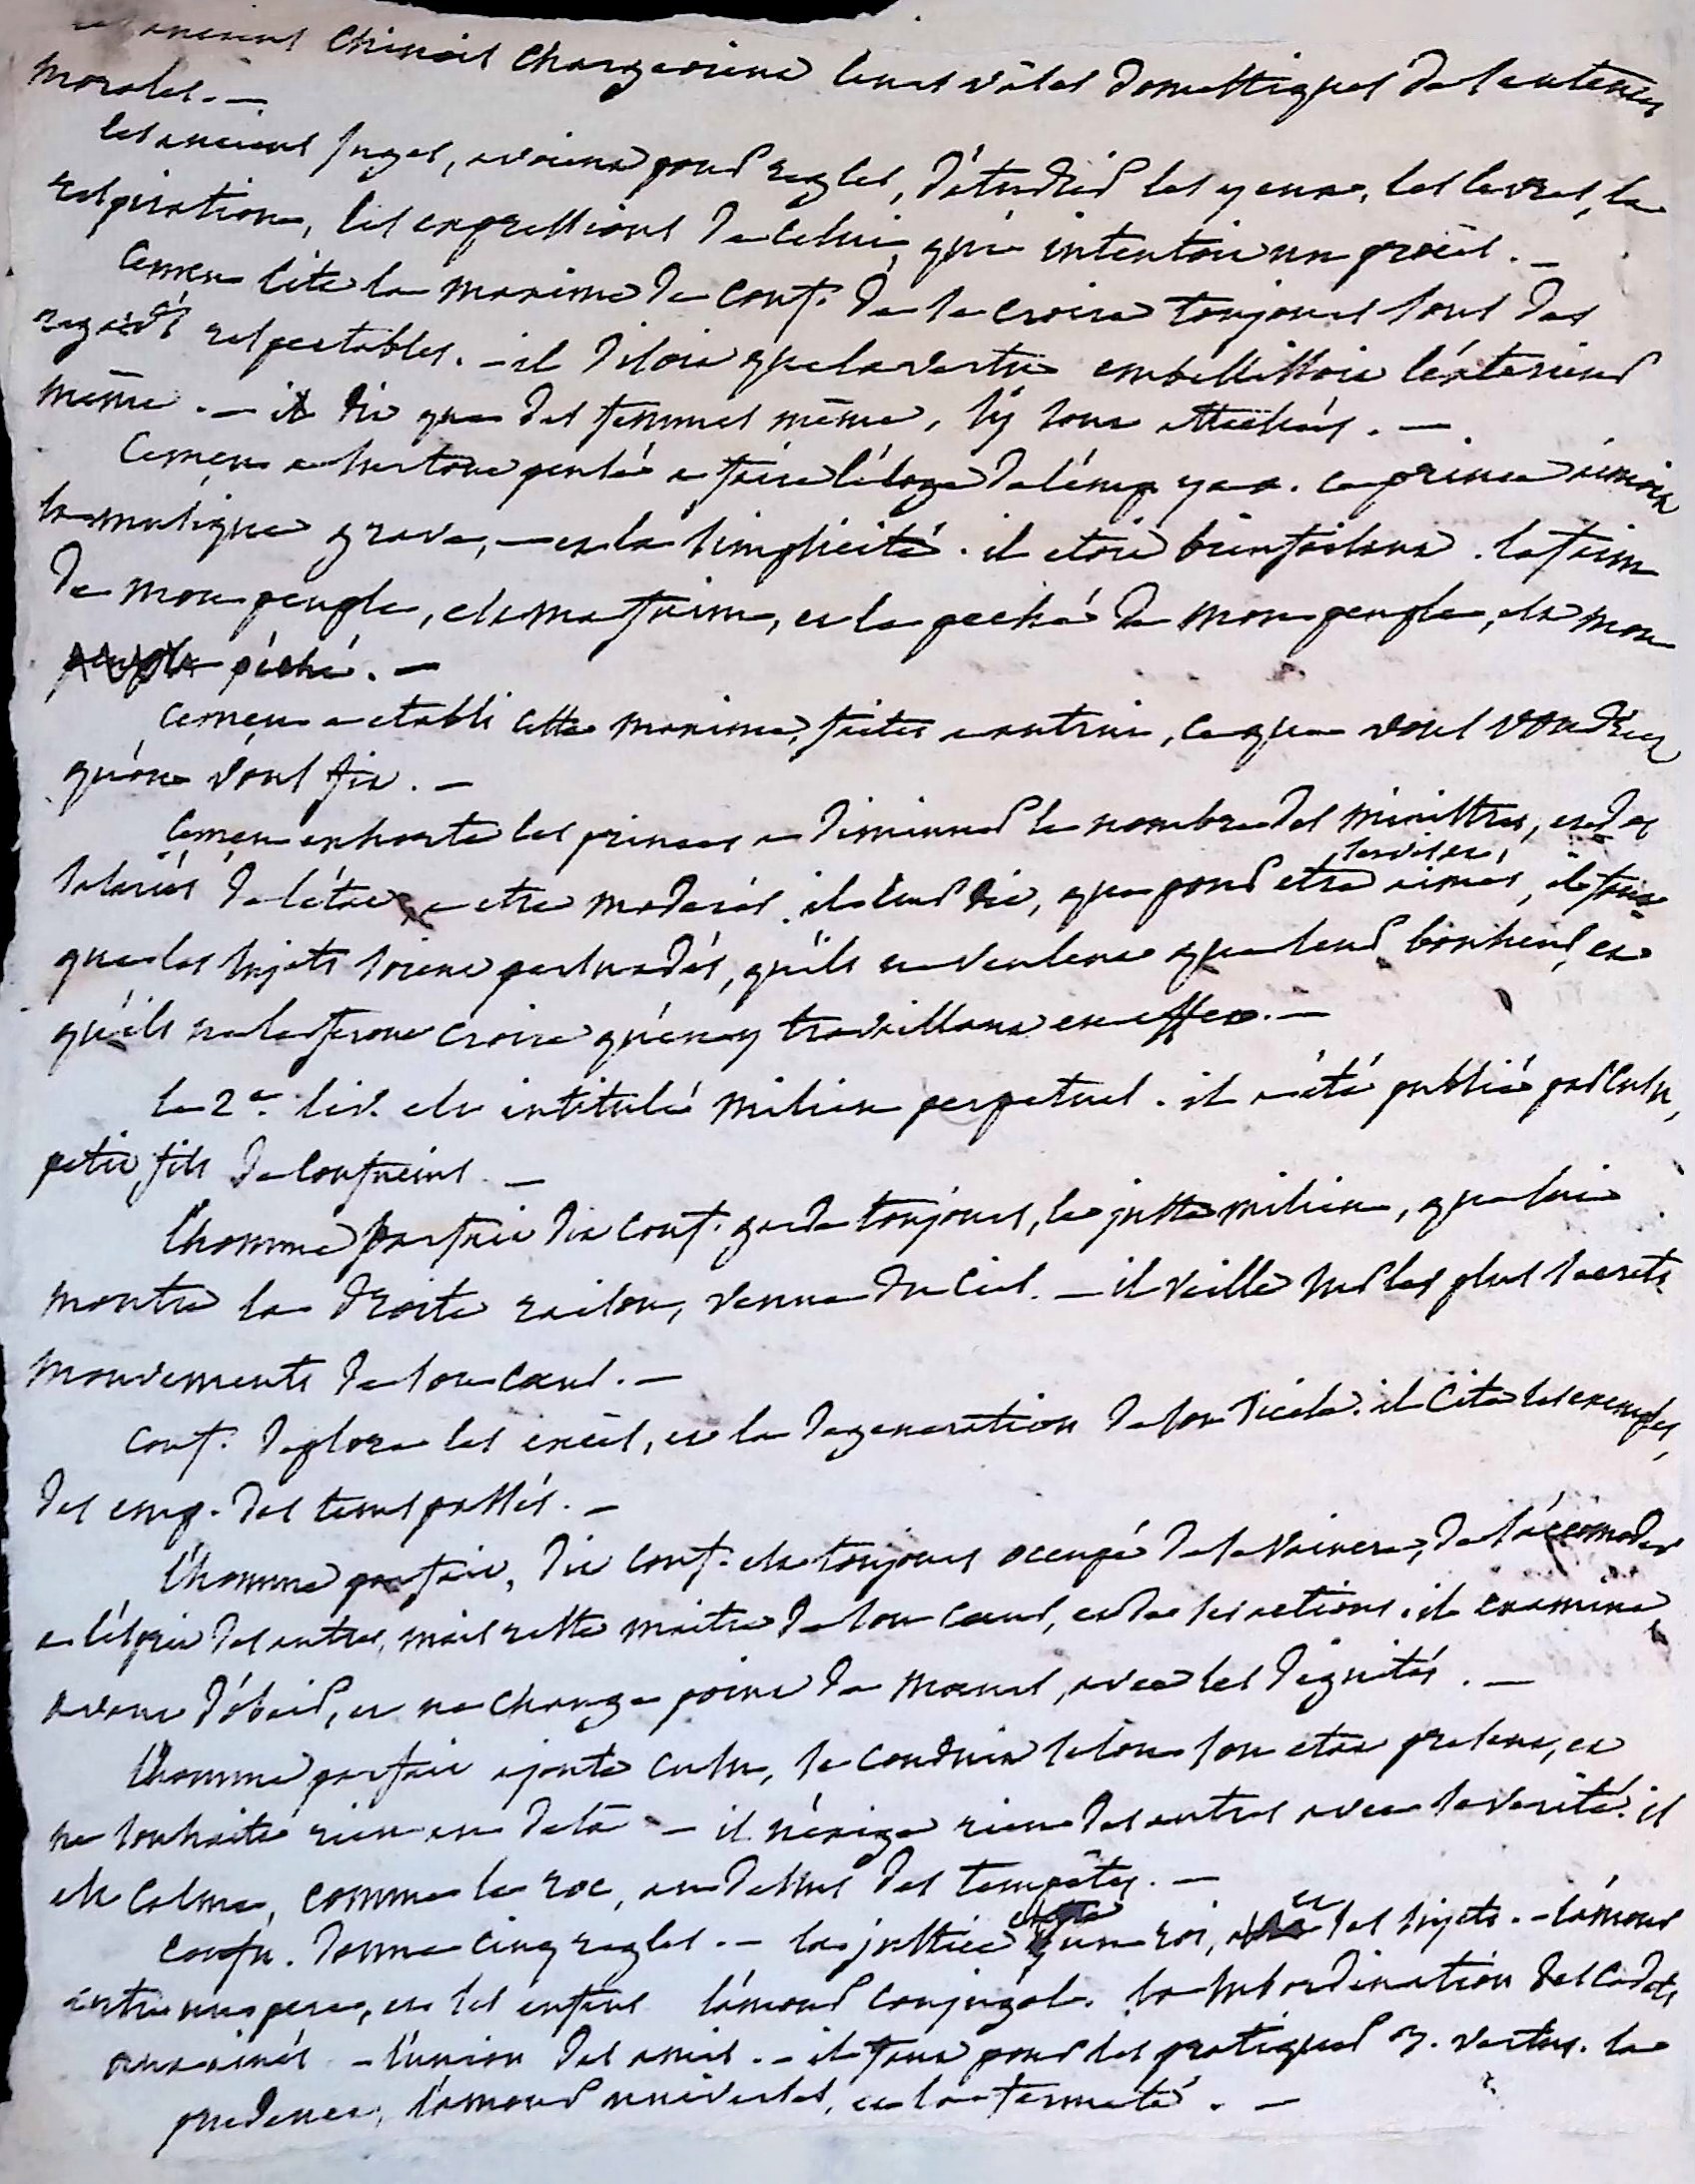 les anciens Chinois Chargeoient leurs vâses domestiques de sentences
morales. —
les anciens juges, avoient pour regles, d'étudier les yeux, les levres, la
respiration, les expressions de celui, qui intentoit un procès. —
Cemeu cite la maxime de Conf. de se croire toujours sous des
regards respectables. — il disoit que la vertu embellissoit l'éxterieur
même. — it dit que des femmes même, s'ÿ sont attachées. —
Cemeu a surtout pensé a faire l'éloge de l'emp. yao. ce prince aimoit
la musique grave, — et la simplicité. il etoit bienfaisant. la faim
de mon peuple, est ma faim, et le peché de mon peuple, est mon
péché. —
Cemeu a etabli cette maxime, faites a autrui, ce que vous voudriez
qu'on vous fit. —
Cemeu exhorte les princes a diminuer le nombre des ministres, et des
salariés de l'état, a etre moderés. il leur dit, que pour etre aimés, il faut
que les sujets soient persuadés, qu'ils ne veulent que leur bonheur, et
qu'ils ne le feront croire qu'en y travaillant en effet. —
le 2e. liv. est intitulé milieu perpetuel. il a été publié par Cusu,
petit fils de Confucius. —
l'homme parfait dit Conf. garde toujours, le juste milieu, que lui
montre la droite raison, venue du Ciel. — il veille sur les plus secrets
mouvements de son cœur. —
Conf. deplore les excès, et la degeneration de son siecle. il Cite les exemples,
des emp. des tems passés. —
l'homme parfait, dit Conf. est toujours occupé de se vaincre, de s'accomoder
a l'esprit des autres, mais reste maitre de son cœur, et de ses actions. il examine
avant d'obeir, et ne change point de mœurs, avec les dignités. —
l'homme parfait ajoute Cusu, se conduit selon son etat present, et
ne souhaite rien au delà — il n'exige rien des autres avec severité. il
est calme, comme le roc, au dessus des tempêtes. —
Confu. donne cinq regles. — la justice entre un roi, et ses sujets. — l'amour
entre un pere, et ses enfans l'amour conjugal. la subordination des cadets
aux ainés — l'union des amis. — il faut pour les pratiquer 3. vertus. la
prudence, l'amour universel, et la fermeté. —